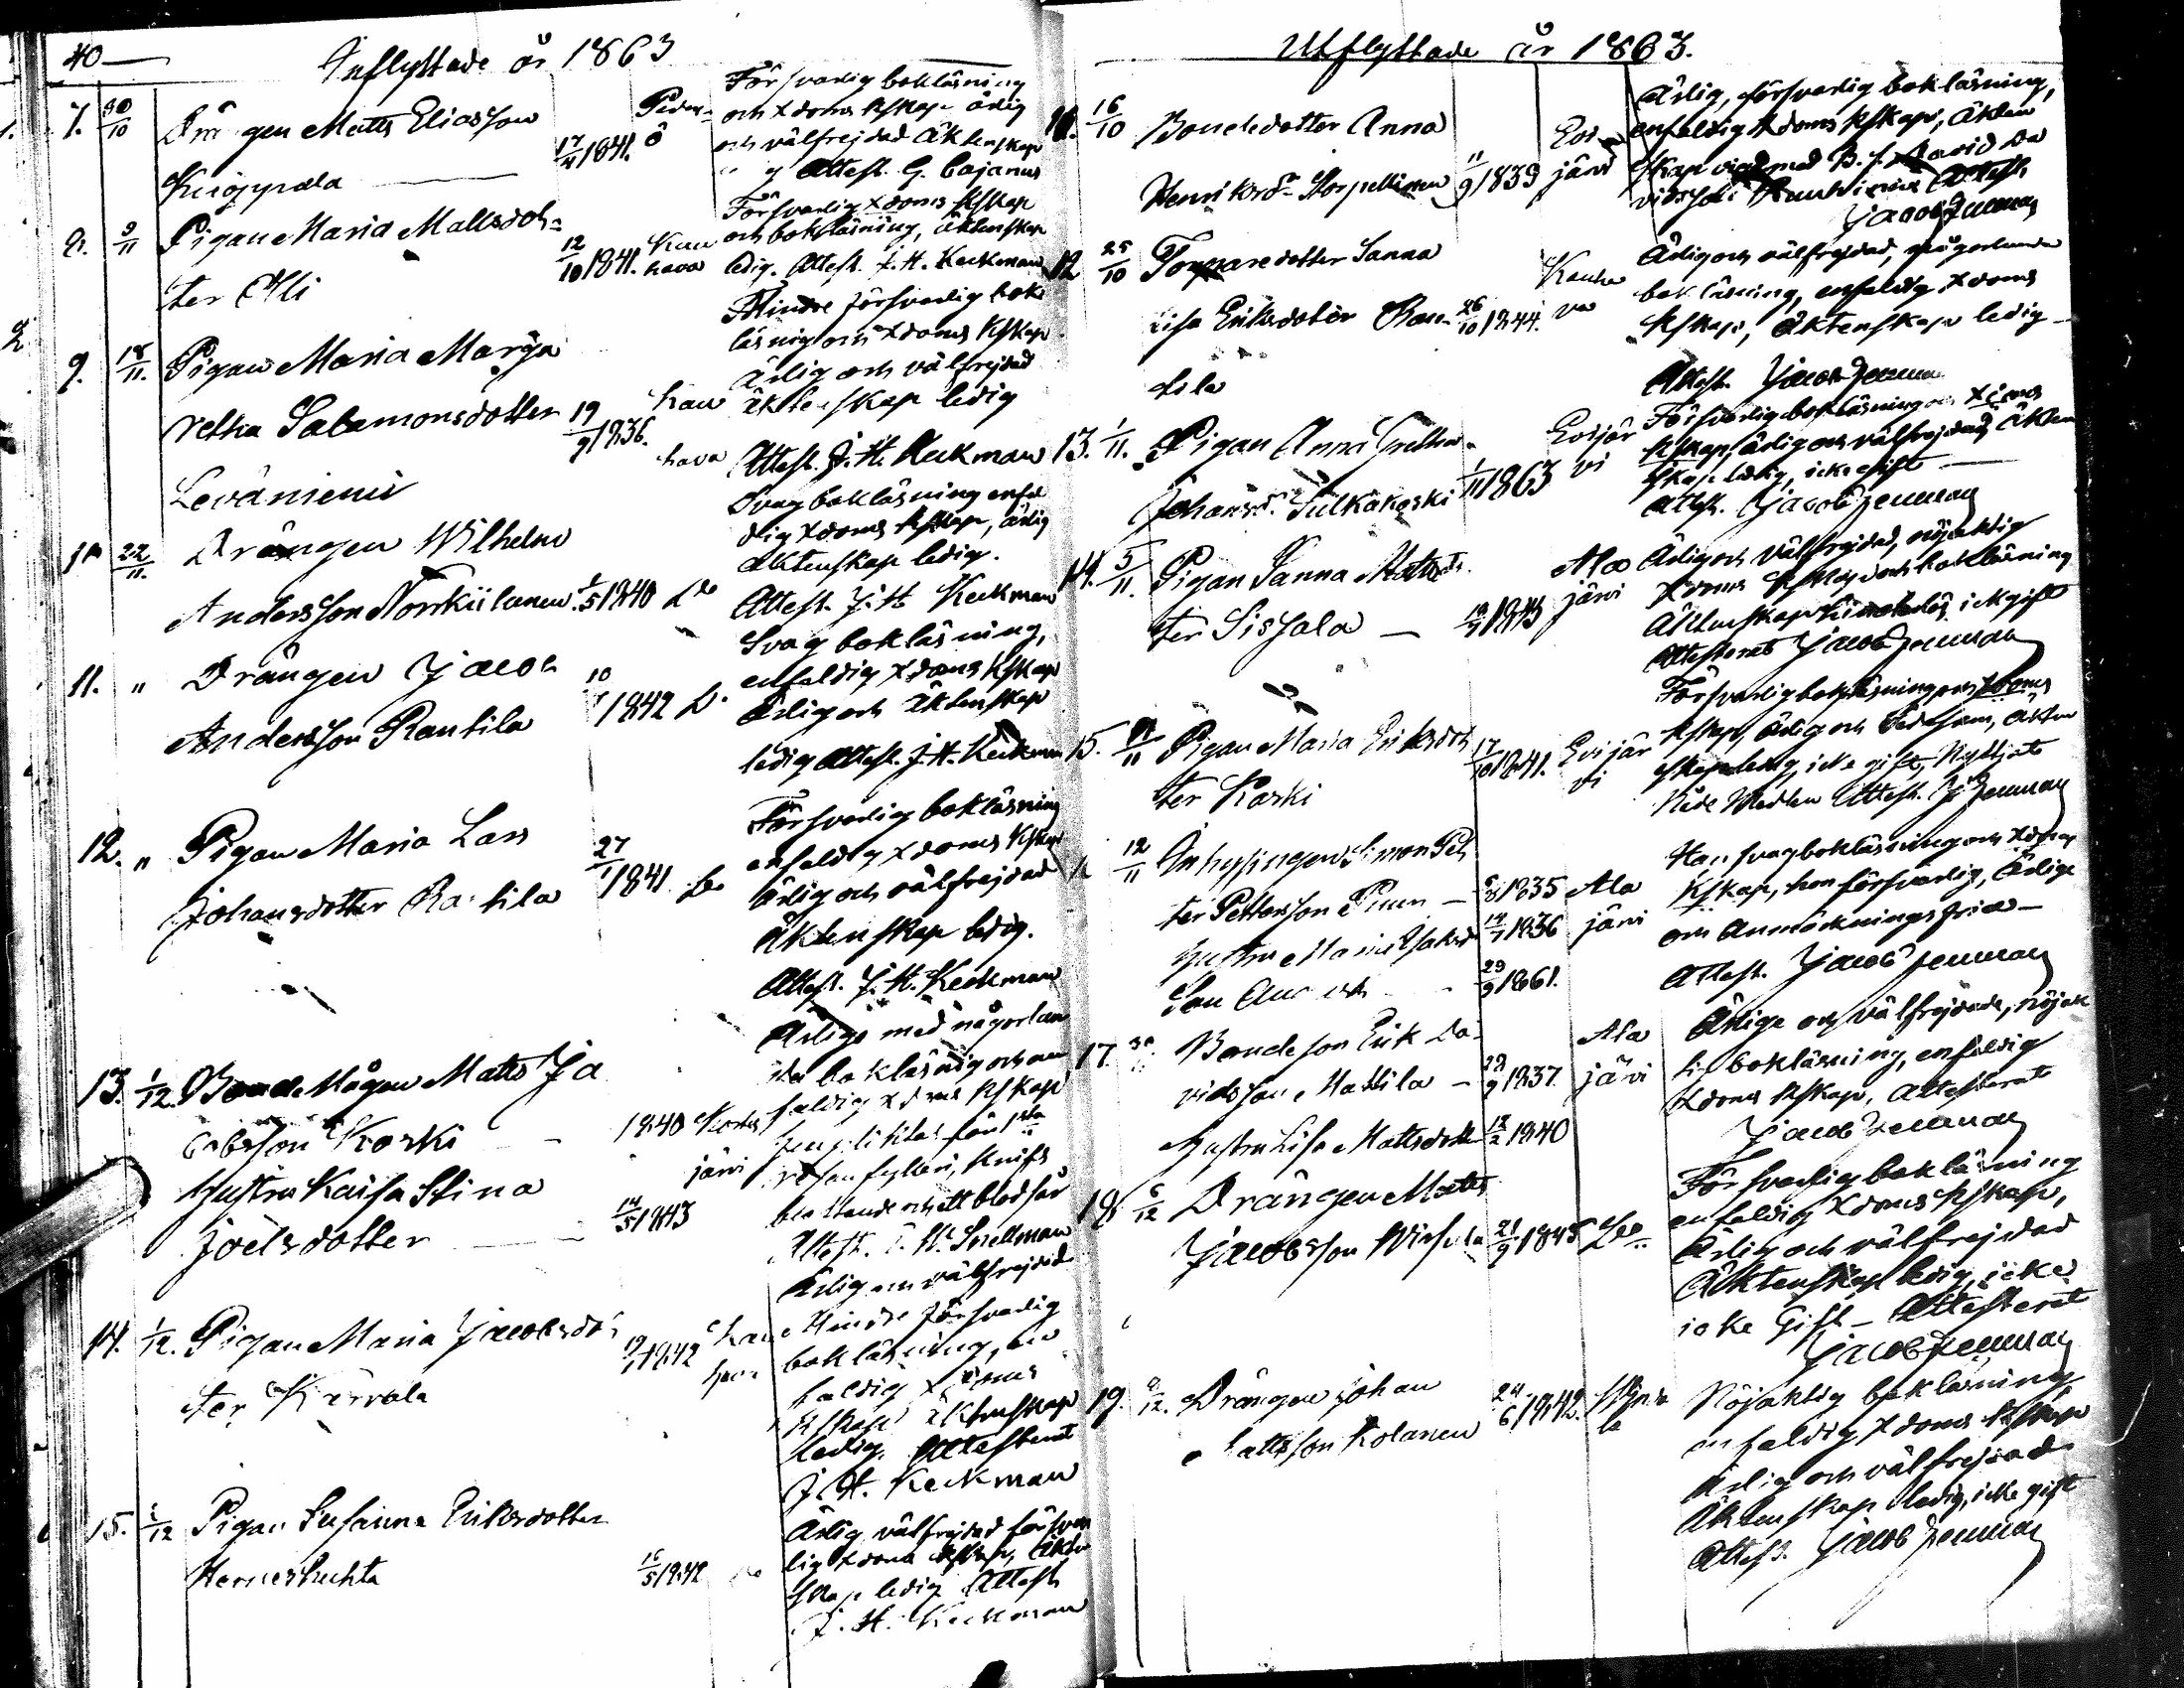 40
Inflyttade år 1863
7. 30/10 Drängen Matts Eliasson
Knöppala 17/4 1841. Peders-
ö
Försvarlig bokläsning
och Xdoms kskap ärlig
och välfrejdad Äktenskap
Attest. G. Cajanus
8. 9/11 Pigan Maria Mattsdot-
ter Olli 12/10 1841. Kau
hava
Försvarlig Xdoms kskap
och bokläsning, Äktenskap
ledig. Attest. J. H. Keckman
9. 18/11. Pigan Maria Marga
retha Salamonsdotter 19/9 1836. Kau
hava
Leväniemi
Mindre försvarlig bok
läsning och Xdoms kskap
ärlig och välfrejdad
äktenskap ledig
Attest. J. H. Keckman
10 22/11. Drängen Wilhelm
Andersson Norrkiilanen 1/5 1840 Do
Svag bokläsning enfal
dig Xdoms kskap, ärlig
äktenskap ledig.
Attest. J. H. Keckman
11. " Drängen Jacob
Andersson Rantila 10 1842 Do
Svag bokläsning,
enfaldig Xdoms kskap
Ärlig och äktenskap
ledig Attest. J. H. Keckman
12. " Pigan Maria Lars
Johansdotter Rantila 27/1 1841 Do
Försvarlig bokläsning
enfaldig Xdoms kskap
Ärlig och välfrejdad
Äktenskap ledig.
Attest. J. H. Keckman
13. 1/12. Bonde Mågen Matts Ja
cobsson Koski 1840 Kortes
järvi
Hustru Kaisa Stina
Joelsdotter 14/5 1843
Ärliga med någorlun
da bokläsning och en
faldig Xdoms kskap
för 1sta
resan fylleri, knifs
och ett blodsår
Attest. Snellman
Ärlig och välfrejdad
14. 1/12. Pigan Maria Jacobsdot
ter Kärvala 19/1 1842 Kau
hava
Mindre försvarlig
bokläsning, en
faldig Xdoms
kskap äktenskap
ledig. Attesterat
J. H. Keckman
15. 1/12 Pigan Susanna Eriksdotter
Herneshuhta 16/5 1842 Do
Ärlig välfrejdad försvar
lig Xdoms kskap, Äkten
skap ledig Attest
J. H. Keckman
Utflyttade år 1863.
16/10 Bondedotter Anna
Henriksdr Storpellinen 11/9 1839 Evi
järvi
Ärlig, försvarlig bokläsning,
enfaldig Xdoms kskap, Äkten
skap vigd med B. S. David Da
vidsson Attest
Jacob Jenman
12 25/10 Torparedotter Sanna
Lisa Eriksdotter Ran- 26/10 1844. Kauha
va
tila
Ärlig och välfrejdad, någorlunda
bokläsning, enfaldig Xdoms
kskap, Äktenskap ledig
Attest. Jacob Jenman
13. 1/11. Pigan Anna Gretha
Johansdr. Sulkakoski 1/11 1863 Evijär
vi
Försvarlig bokläsning och Xdoms
kskap, ärlig och välfrejdad, Äkten
skap ledig, icke gift
Attest. Jacob Jenman
14. 5/11. Pigan Sanna Mattsdot
ter Sissala 1843 Ala
järvi
Ärlig och Välfrejdad, nöjaktig
Xdoms kskap och bokläsning
Äktenskap icke gift
Attesterat Jacob Jenman
15. 11 Pigan Maria Eriksdot
ter Koski 17/10 1841. Evijär
vi
Försvarlig bokläsning och Xdoms
kskap, Ärlig och Sedesam, Äkten
skap ledig, icke gift, Nyttjat
Nåde Medlen Attest. J. Jenman
12/11 Inhysingen Simon Pet
ter Pettersson Pinen 1835 Ala
Hustru Maria Isaksd 14/7 1836 järvi
Son 29/9 1861.
Han svag bokläsning och Xdoms
kskap, hon försvarlig, Ärliga
och Anmärkningsfria
Attest. Jacob Jenman
17. 30 Bondeson Erik Da
vidsson Mattila 29/9 1837. Ala
järvi
Hustru Lisa Mattsdotter 18/2 1840
Ärliga och välfrejdade, nöjak
tig bokläsning, enfaldig
Xdoms kskap, Attesterat
Jacob Jenman
18 5/12 Drängen Matts
Jacobsson Wirsula 21/9 1845 Do
Försvarlig bokläsning
enfaldig Xdoms kskap,
Ärlig och välfrejdad
Äktenskap ledig, icke
icke Gift Attesterat
Jacob Jenman
19. 9/12. Drängen Johan
Mattsson Kolanen 24/6 1842.
Nöjaktig bokläsning
enfaldig Xdoms kskap
Ärlig och välfrejdad
Äktenskap ledig, icke gift
Attest. Jacob Jenman